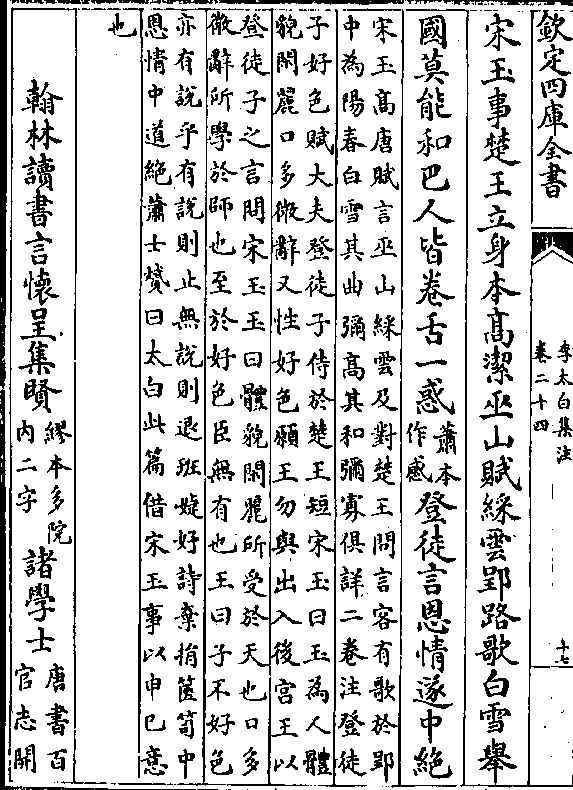 欽定四庫全書
李太白集注
卷二十四
十七
宋玉事楚王立身本高潔巫山賦綵雲郢路歌白雪舉
國莫能和巴人皆卷舌一惑
蕭本
作感
登徒言恩情遂中絶
宋玉高唐賦言巫山綵雲及對楚王問言客有歌於郢
中為陽春白雪其曲彌高其和彌寡俱詳二卷注登徒
子好色賦大夫登徒子侍於楚王短宋玉曰玉為人體
貌閑麗口多微辭又性好色願王勿與出入後宫王以
登徒子之言問宋玉玉曰體貌閑麗所受於天也口多
微辭所學於師也至於好色臣無有也王曰子不好色
亦有說乎有說則止無說則退班婕妤詩棄捐篋笥中
恩情中道絶蕭士贇曰太白此篇借宋玉事以申已意
也
翰林讀書言懐呈集賢
繆本多院
内二字
諸學士
唐書百
官志開